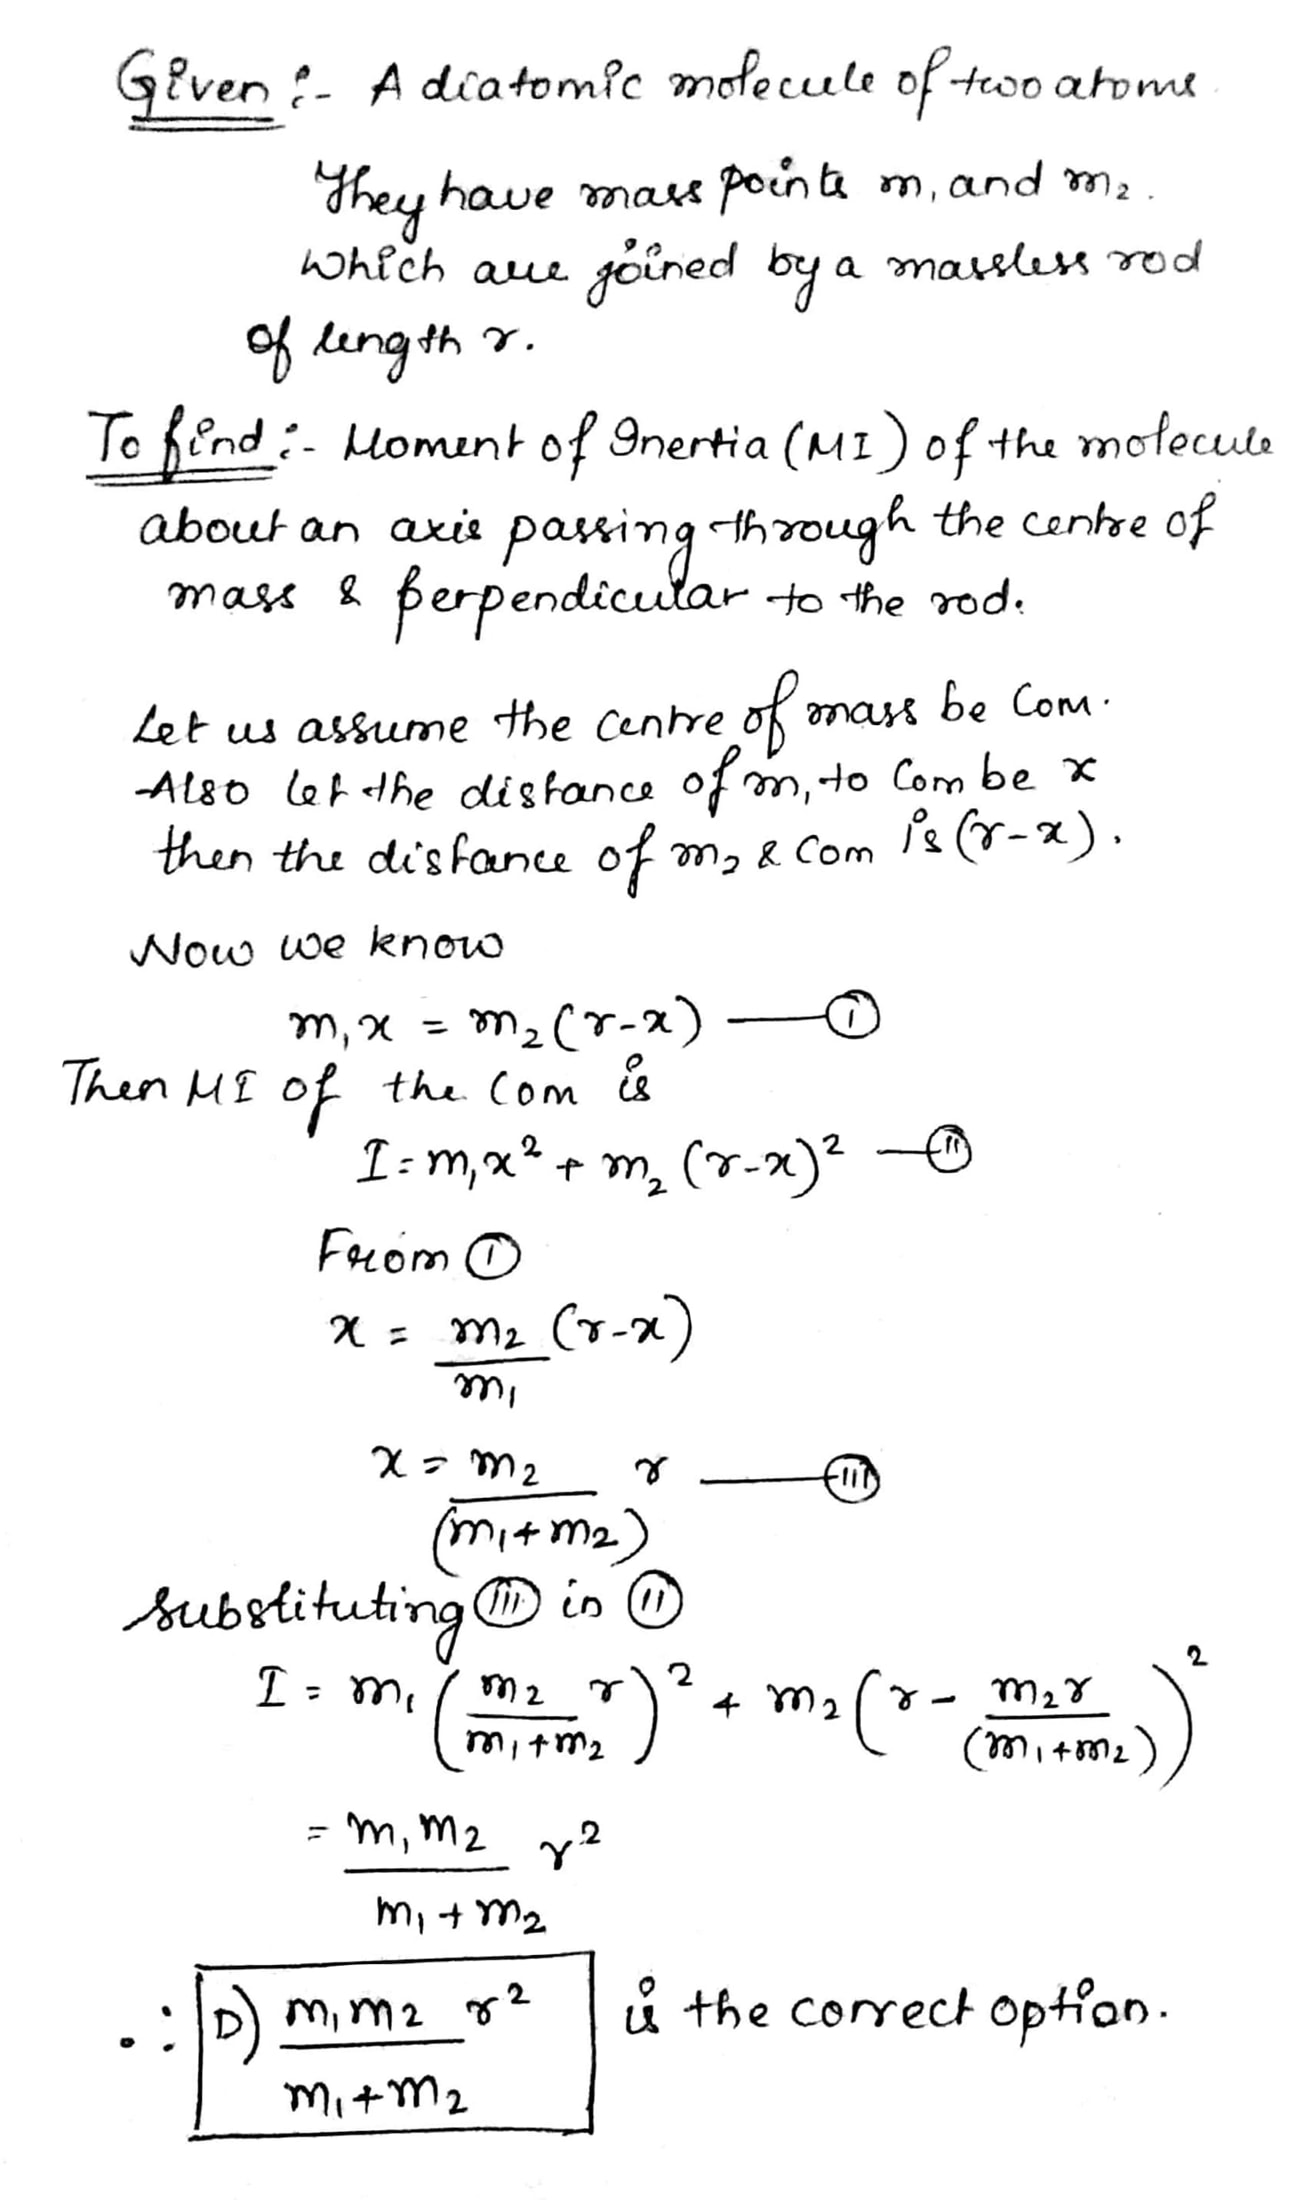 Given :- A diatomic molecule of two atoms.
They have mass points m₁ and m₂.
which are joined by a massless rod
of length r.
To find :- Moment of Inertia (MI) of the molecule
about an axis passing through the centre of
mass & perpendicular to the rod.
Let us assume the centre of mass be Com.
Also let the distance of m₁ to Com be x
then the distance of m₂ & Com is (r-x).
Now we know
m₁x = m₂(r-x) —— (I)
Then MI of the Com is
I = m₁x² + m₂(r-x)² —(II)
From (I)
x = m₂/m₁ (r-x)
x = m₂/(m₁+m₂) r —— (III)
Substituting (III) in (II)
I = m₁(m₂/(m₁+m₂) r)² + m₂(r - m₂r/(m₁+m₂))²
= m₁m₂/(m₁+m₂) r²
∴ D) m₁m₂/(m₁+m₂) r² is the correct option.